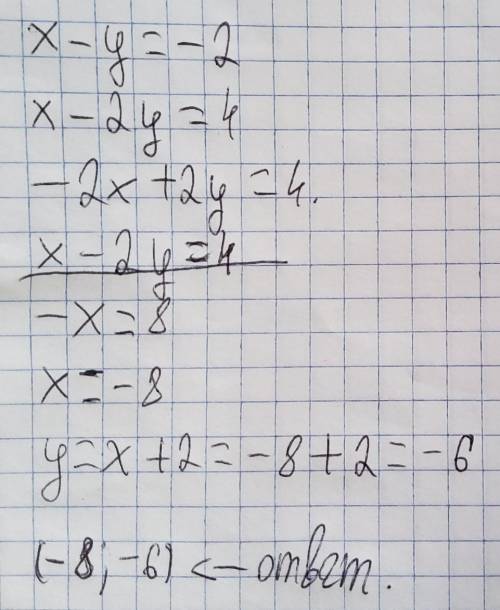 x - y = -2
x - 2y = 4
-2x + 2y = 4.
x - 2y = 4
-x = 8
x = -8
y = x + 2 = -8 + 2 = -6
(-8; -6) <- ответ.